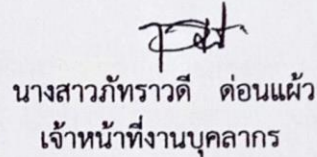 นางสาวภัทราวดี ด่อนแผ้ว
เจ้าหน้าที่งานบุคลากร